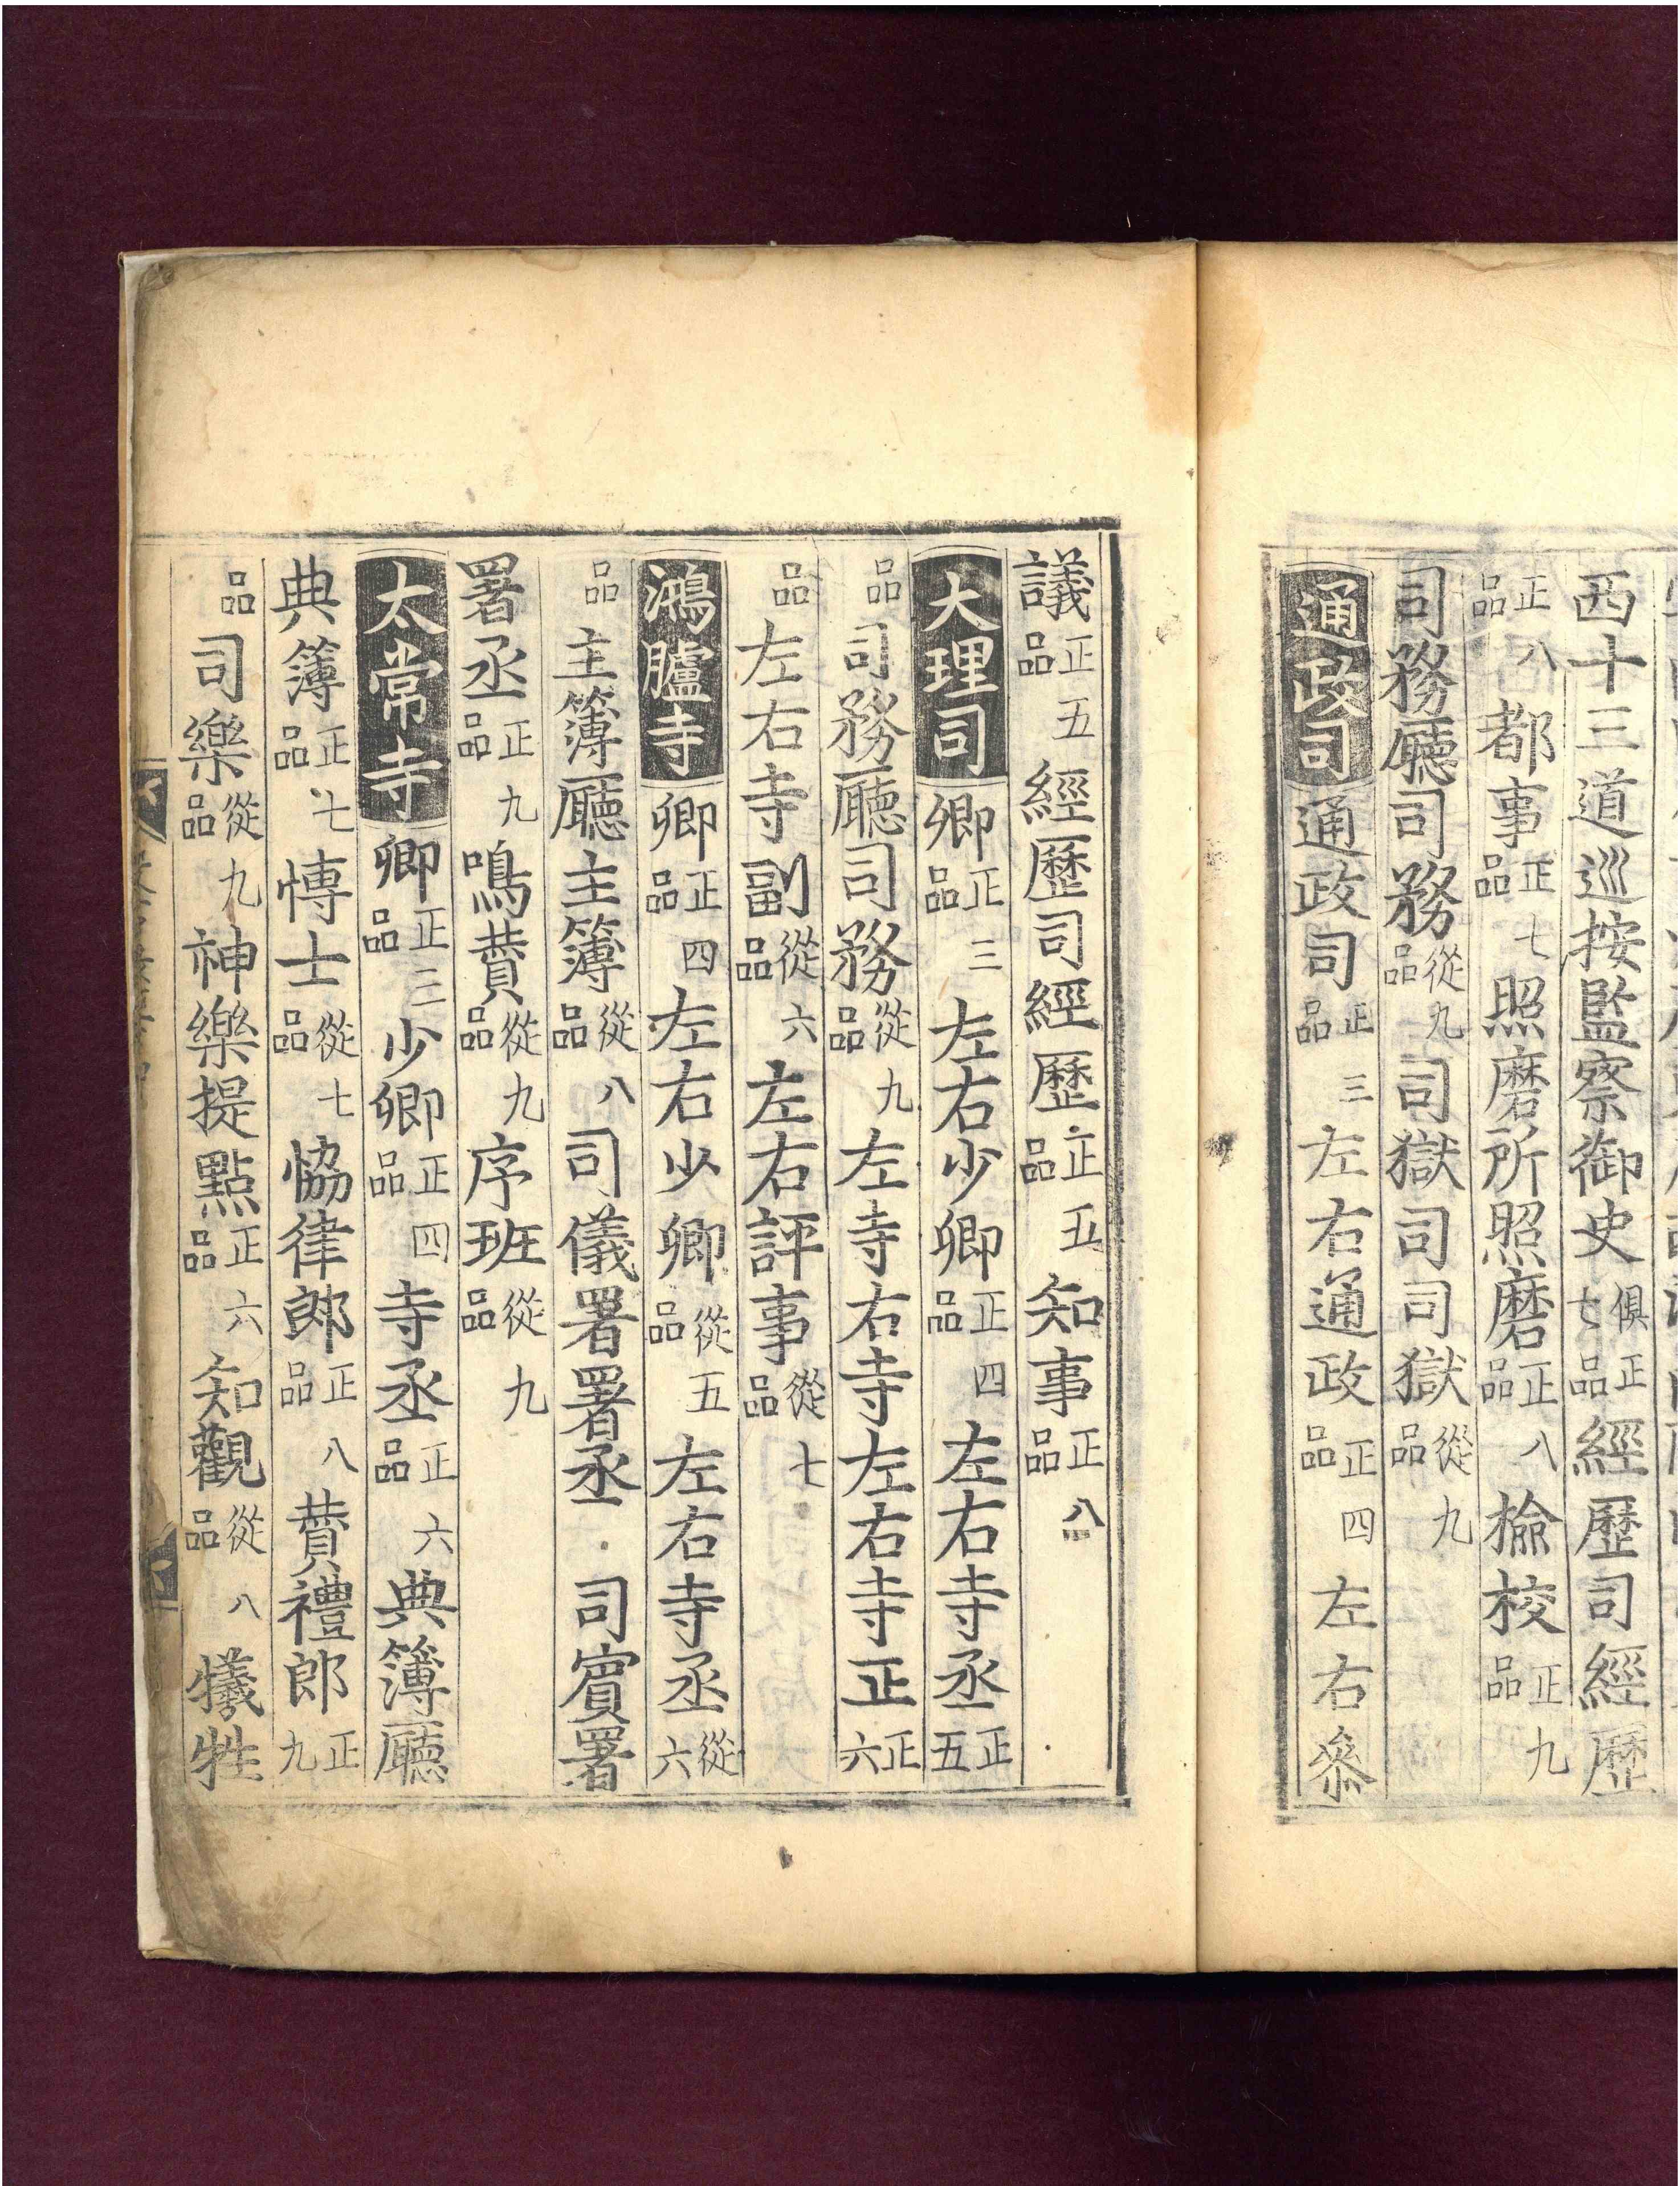 西十三道巡按監察御史俱正七品經歷司經歷
正八品都事正七品照磨所照磨正八品檢校正九
司務廳司務從九品司獄司司獄從九品
通政司通政司正三品左右通政正四品左右叅
議正五品經歷司經歷正五品知事正八品
大理司卿正三品左右少卿正四品左右寺丞正五
品司務廳司務從九品左寺右寺左右寺正正六
品左右寺副從六品左右評事從七品
鴻臚寺卿正四品左右少卿從五品左右寺丞從六
品主簿廳主簿從八品司儀署署丞司賓署
署丞正九品鳴賛從九品序班從九品
太常寺卿正三品少卿正四品寺丞正六品典簿廳
典簿正七品博士從七品協律郎正八品賛禮郎正九
品司樂從九品神樂提點正六品知觀從八品犧牲